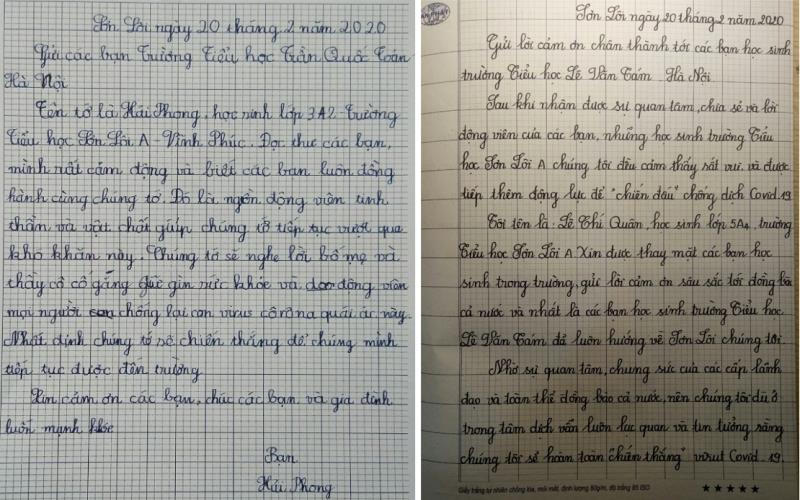 Sơn Lôi ngày 20 tháng 2 năm 2020
Gửi các bạn Trường Tiểu học Trần Quốc Toản
Hà Nội
Tên tớ là Hải Phong, học sinh lớp 3A2 Trường
Tiểu học Sơn Lôi A - Vĩnh Phúc. Đọc thư các bạn,
mình rất cảm động và biết các bạn luôn đồng
hành cùng chúng tớ. Đó là nguồn động viên tinh
thần và vật chất giúp chúng tớ tiếp tục vượt qua
khó khăn này. Chúng tớ sẽ nghe lời bố mẹ và
thầy cô cố gắng giữ gìn sức khỏe và động viên
mọi người chống lại con virus côrona quái ác này.
Nhất định chúng tớ sẽ chiến thắng để chúng mình
tiếp tục được đến trường.
Xin cảm ơn các bạn, chúc các bạn và gia đình
luôn mạnh khỏe.
Bạn
Hải Phong
Sơn Lôi ngày 20 tháng 2 năm 2020
Gửi lời cảm ơn chân thành tới các bạn học sinh
trường Tiểu học Lê Văn Tám Hà Nội
Sau khi nhận được sự quan tâm, chia sẻ và lời
động viên của các bạn, những học sinh trường Tiểu
học Sơn Lôi A chúng tôi đều cảm thấy rất vui và được
tiếp thêm động lực để "chiến đấu" chống dịch Covid.19
Tôi tên là: Lê Chí Quân, học sinh lớp 5A4, trường
Tiểu học Sơn Lôi A. Xin được thay mặt các bạn học
sinh trong trường, gửi lời cảm ơn sâu sắc tới đồng bào
cả nước và nhất là các bạn học sinh trường Tiểu học
Lê Văn Tám đã luôn hướng về Sơn Lôi chúng tôi.
Nhờ sự quan tâm, chung sức của các cấp lãnh
đạo và toàn thể đồng bào cả nước, nên chúng tôi dù ở
trong tâm dịch vẫn luôn lạc quan và tin tưởng rằng
chúng tôi sẽ hoàn toàn "chiến thắng" virut Covid.19.